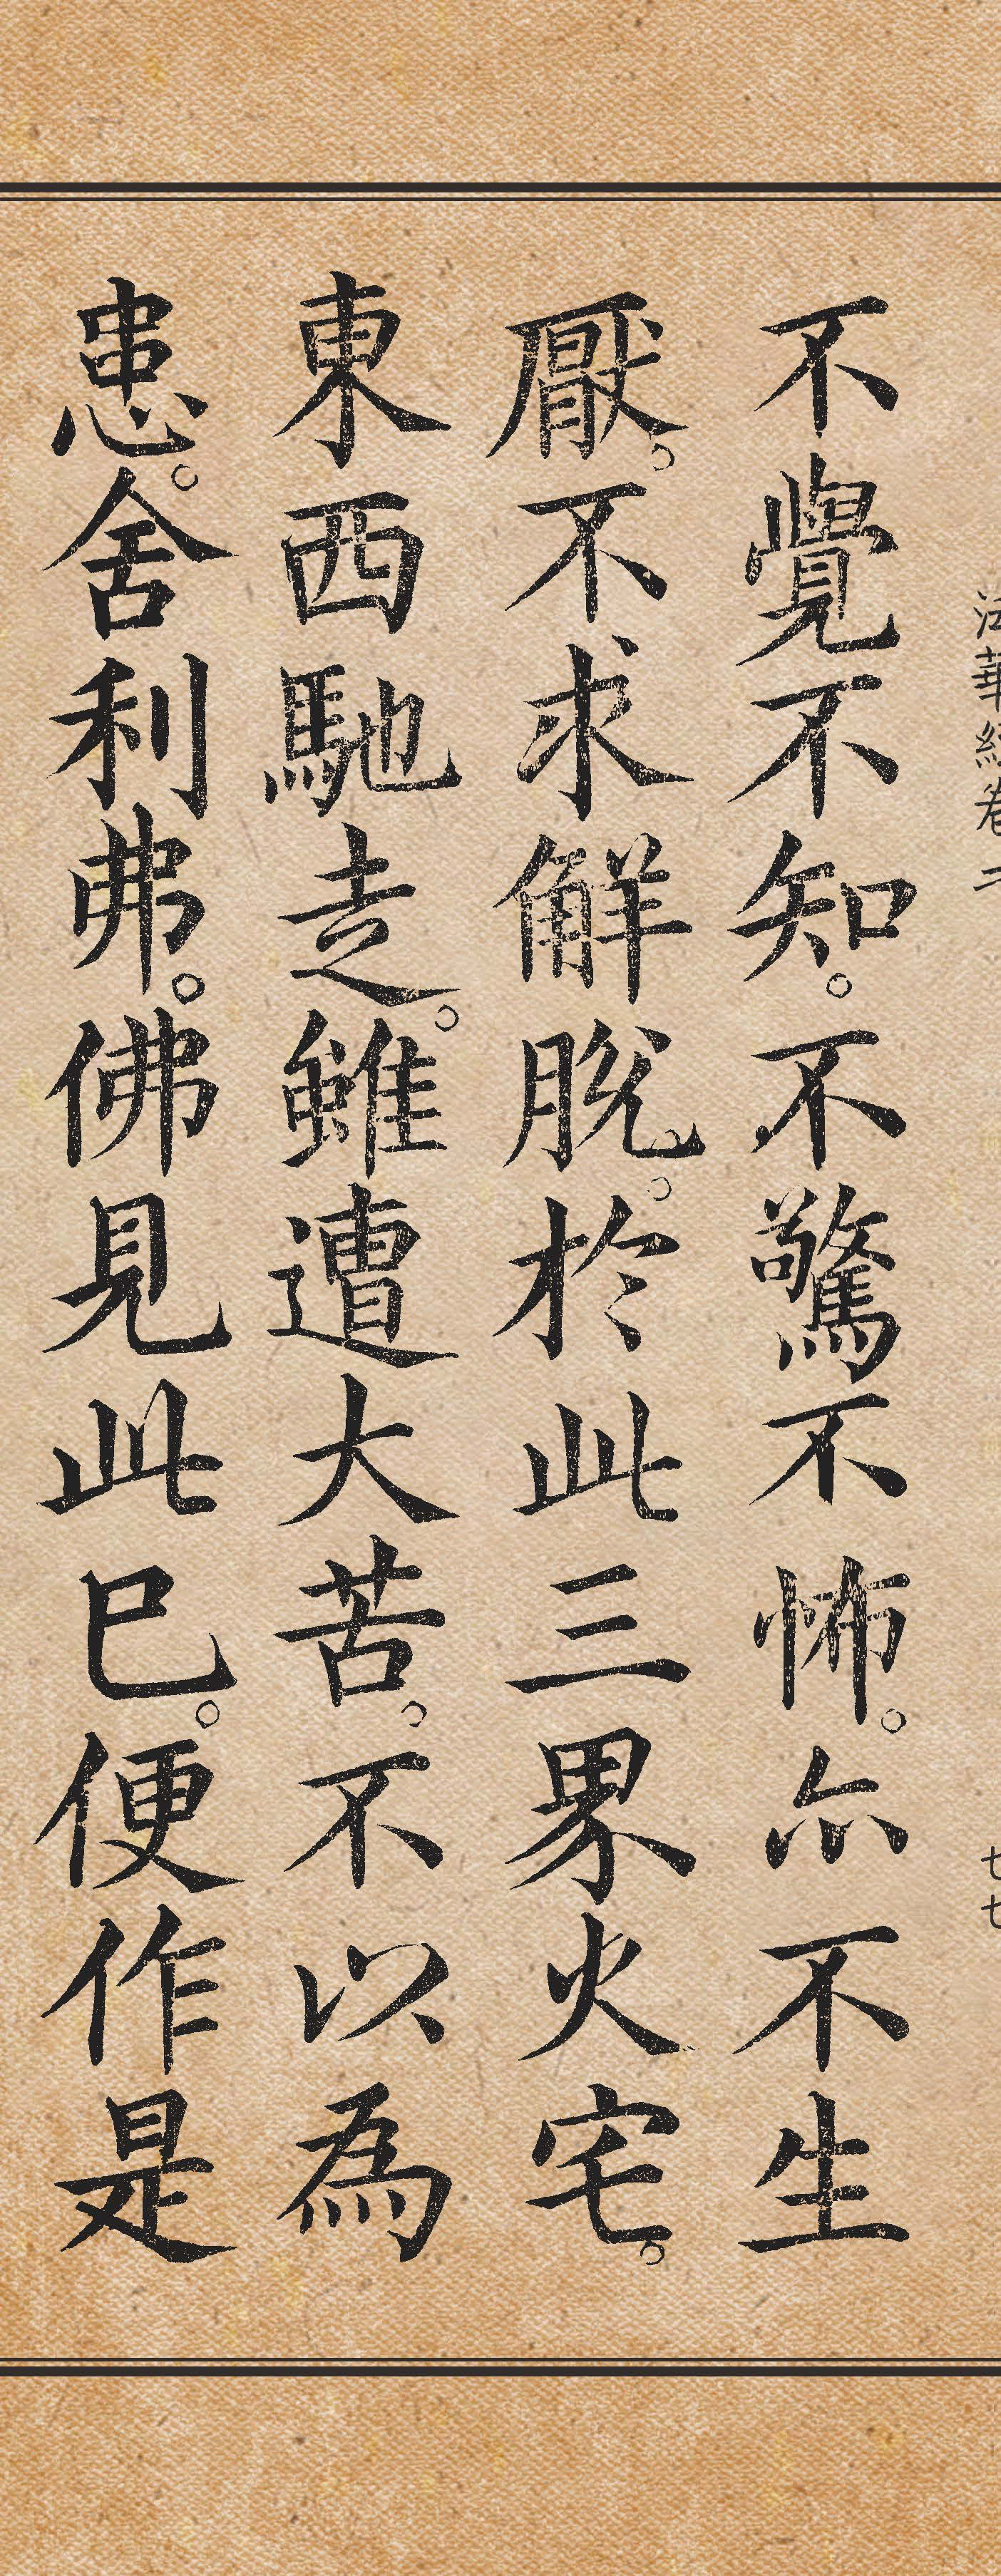 法華經卷二
七七
不覺不知。不驚不怖。亦不生
厭。不求解脫。於此三界火宅。
東西馳走。雖遭大苦。不以為
患。舍利弗。佛見此已。便作是